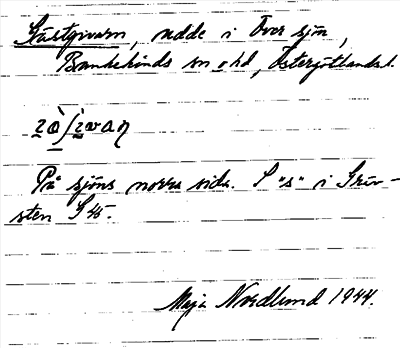 Gästgivarn, udde i Över sjön,
Bankekinds sn o hd, Östergötlands l.
På sjöns norra sida. S "s" i Gräv-
sten S 45.
Maja Nordlund 1944.